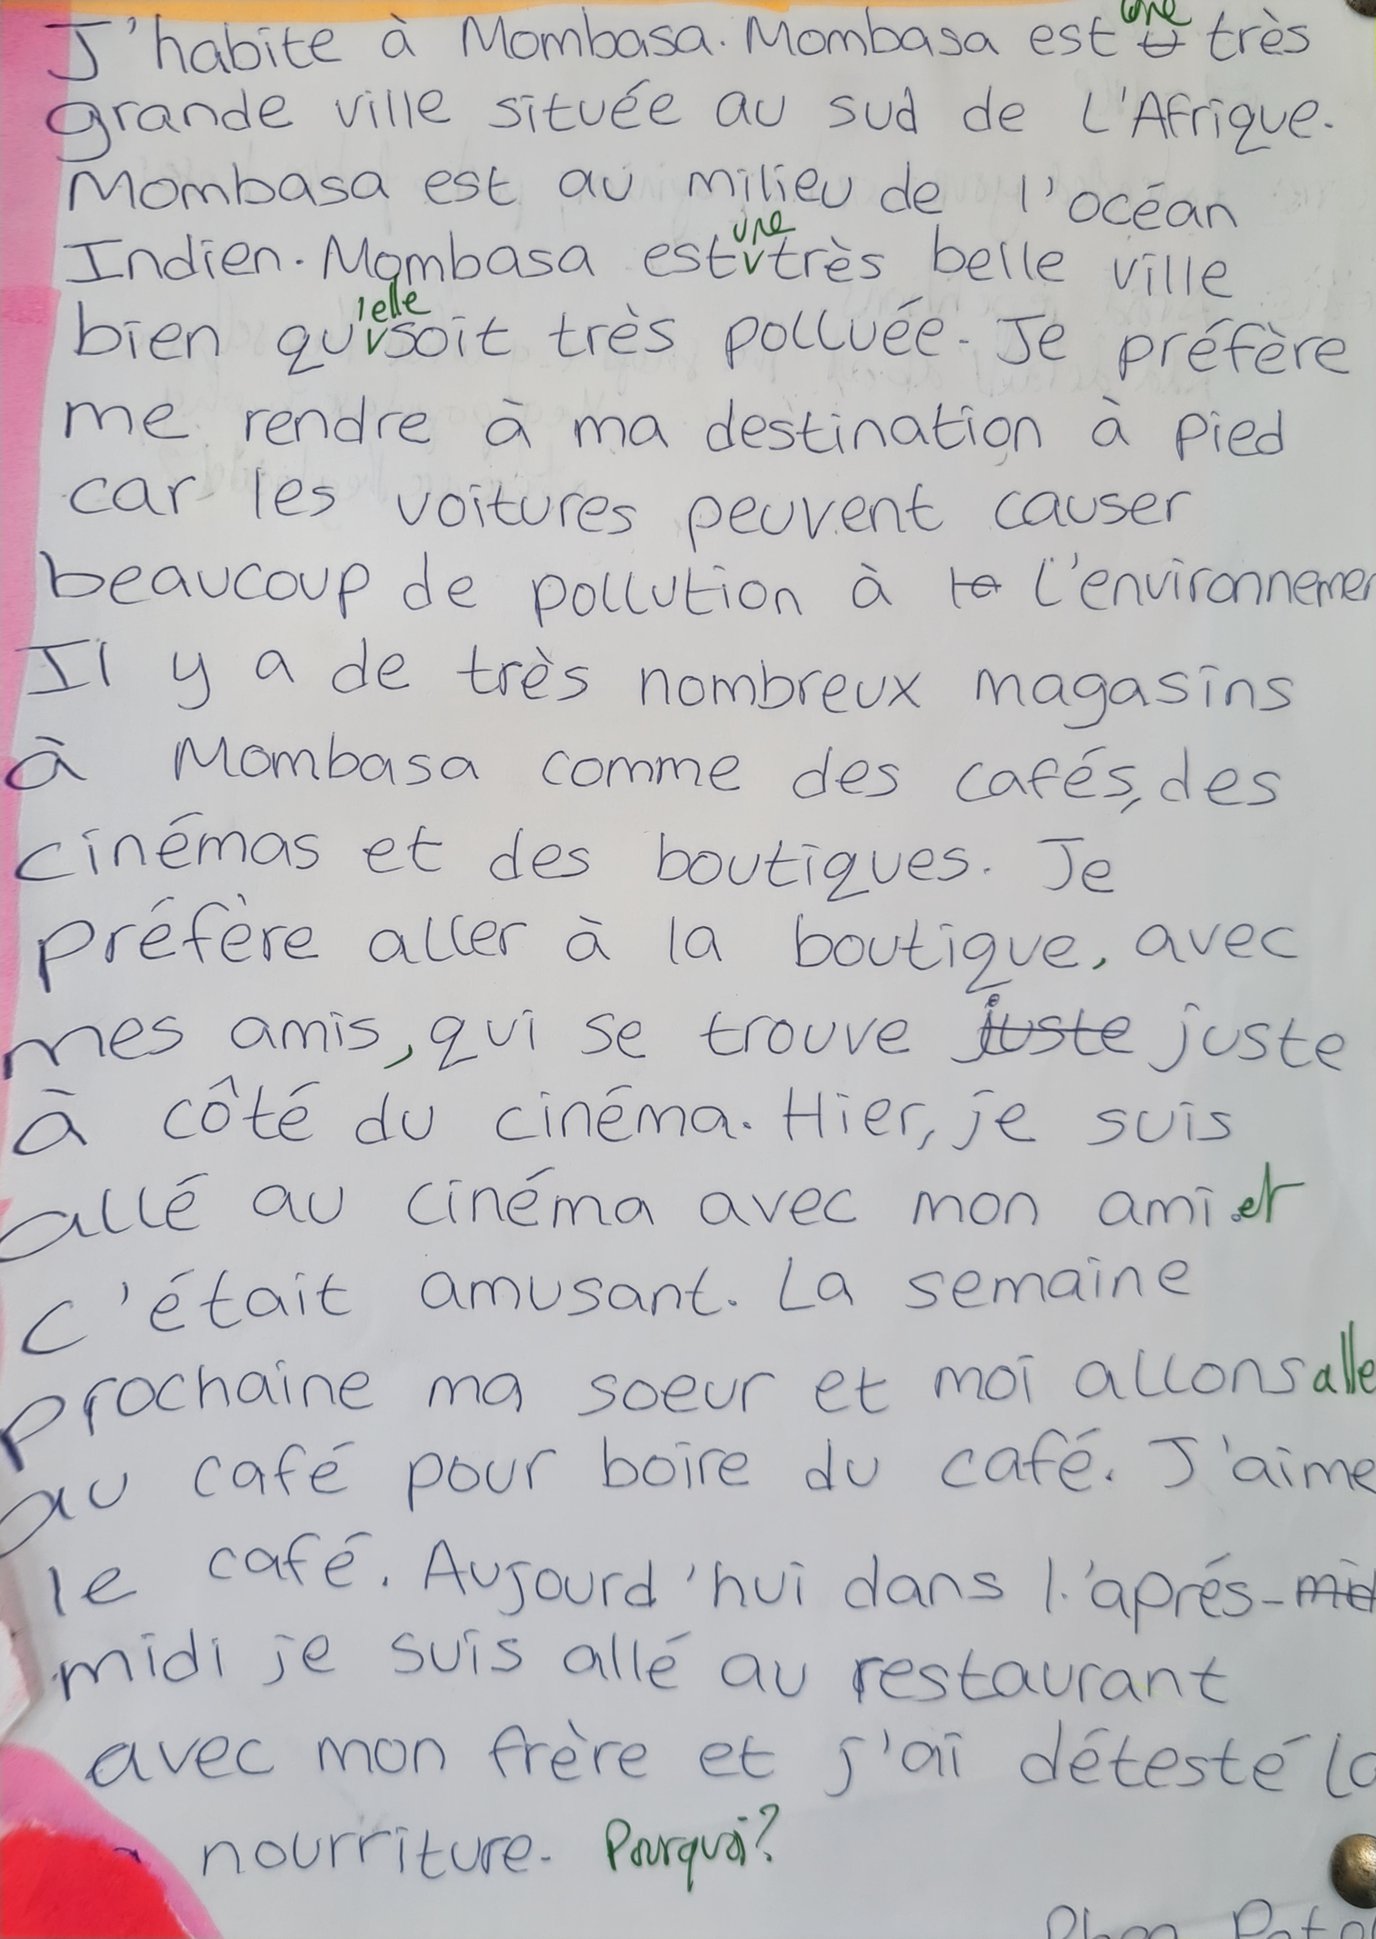 J'habite à Mombasa. Mombasa est une très
grande ville située au sud de L'Afrique.
Mombasa est au milieu de l'océan
Indien. Mombasa est une très belle ville
bien qu'elle soit très polluée. Je préfère
me rendre à ma destination à pied
car les voitures peuvent causer
beaucoup de pollution à L'environnemen
Il y a de très nombreux magasins
à Mombasa comme des cafés, des
cinémas et des boutiques. Je
préfère aller à la boutique, avec
mes amis, qui se trouve juste juste
à côté du cinéma. Hier, je suis
allé au cinéma avec mon ami et
c'était amusant. La semaine
prochaine ma soeur et moi allons alle
au café pour boire du café. J'aime
le café. Aujourd'hui dans l'aprés-mid
midi je suis allé au restaurant
avec mon frère et j'ai détesté la
nourriture. Pourquoi?